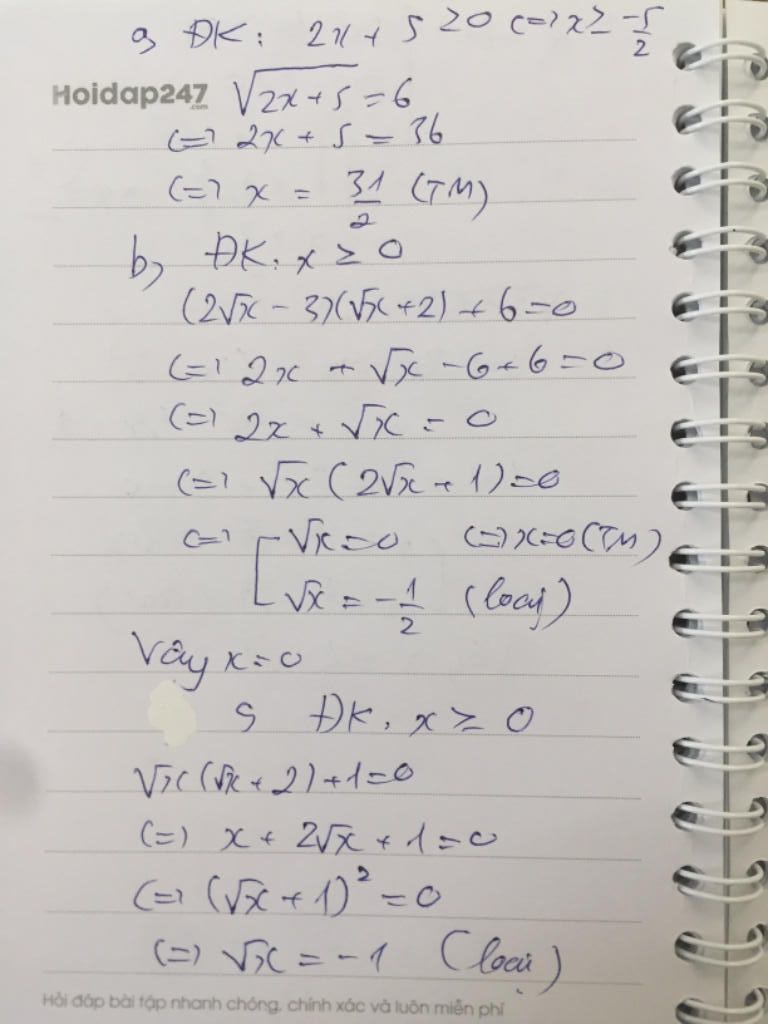 a, ĐK: 2x + 5 ≥ 0 (=) x ≥ -5/2
Hoidap247.com √(2x+5) = 6
(=) 2x + 5 = 36
(=) x = 31/2 (TM)
b, ĐK: x ≥ 0
(2√x - 3)(√x + 2) + 6 = 0
(=) 2x + √x - 6 + 6 = 0
(=) 2x + √x = 0
(=) √x (2√x + 1) = 0
(=) [ √x = 0 (=) x = 0 (TM)
√x = -1/2 (loại)
Vậy x = 0
c, ĐK: x ≥ 0
√x(√x + 2) + 1 = 0
(=) x + 2√x + 1 = 0
(=) (√x + 1)² = 0
(=) √x = -1 (loại)
Hỏi đáp bài tập nhanh chóng, chính xác và luôn miễn phí